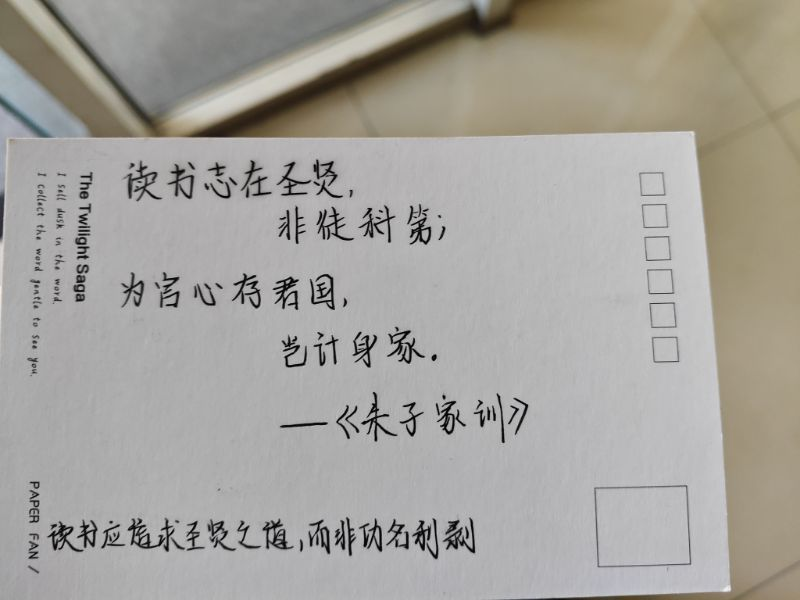 读书志在圣贤,
非徒科第;
为官心存君国,
岂计身家.
—《朱子家训》
读书应追求圣贤之道,而非功名利剥
The Twilight Saga
I sell dusk in the word.
I collect the word gentle to see you.
PAPER FAN /